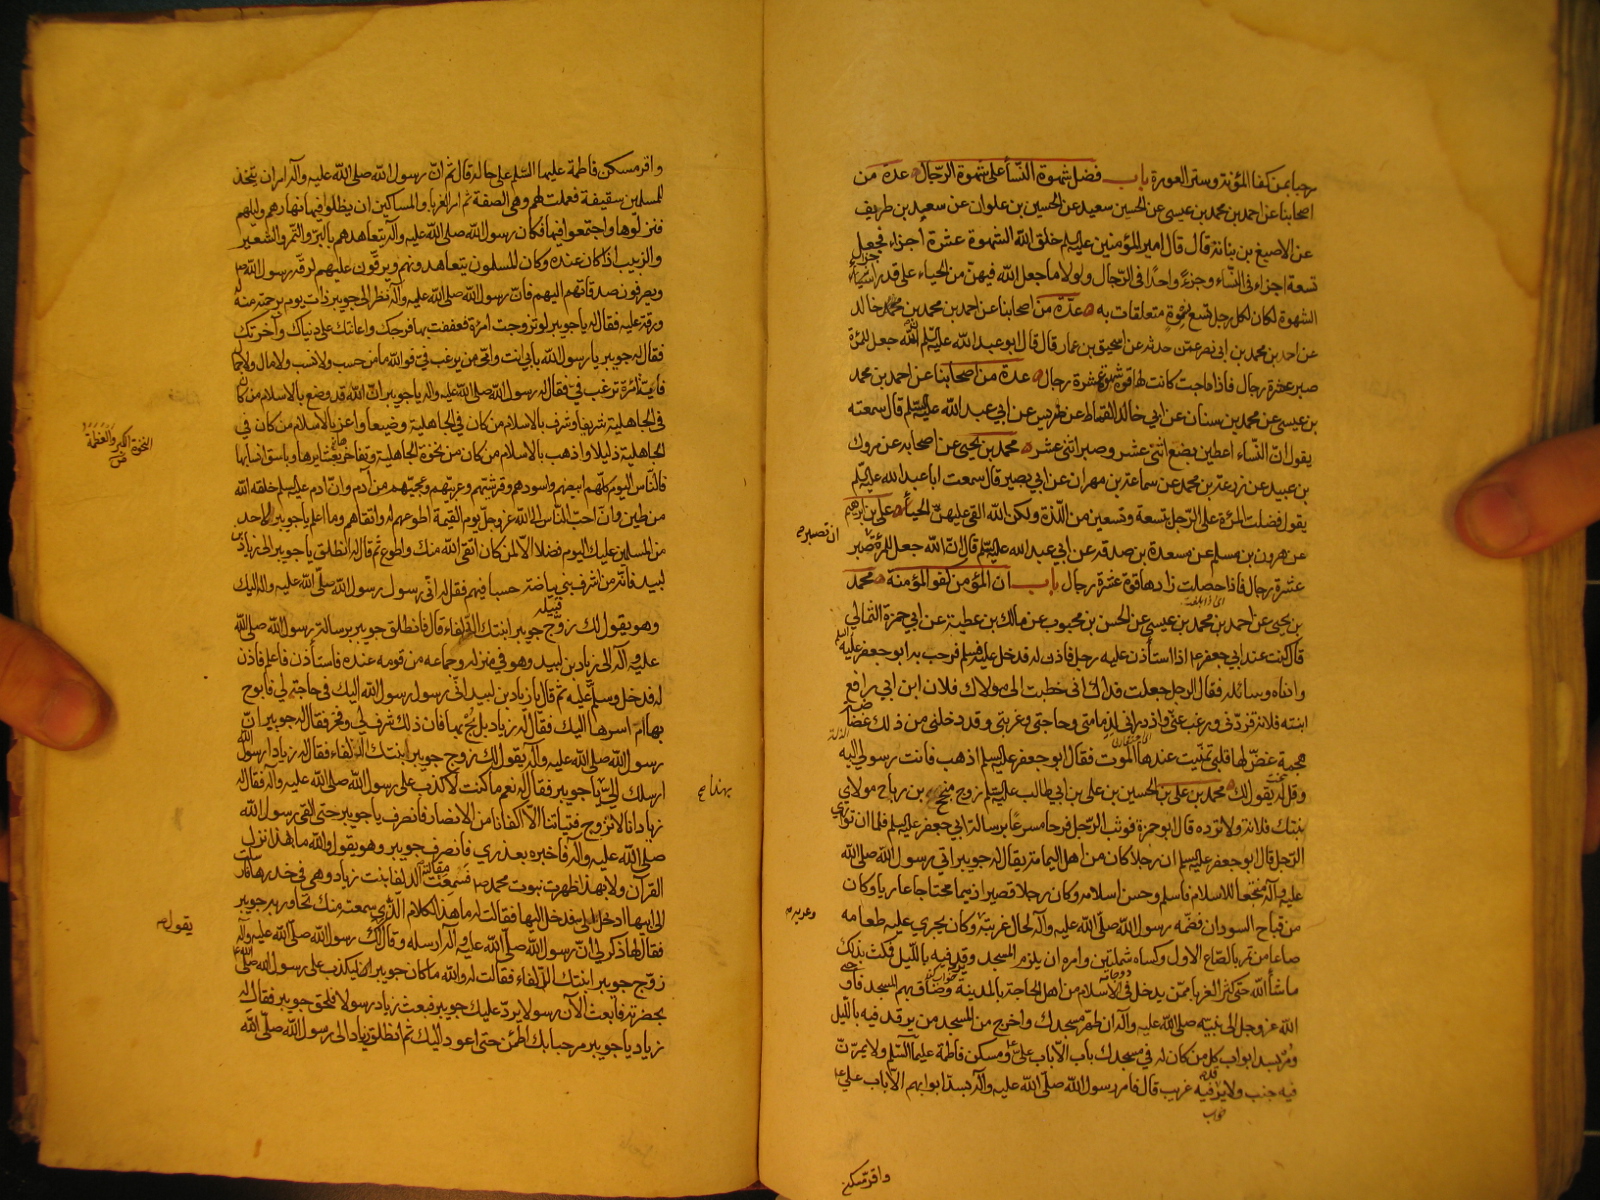 مرحبا بمن كفانا المؤنة وستر العورة باب فضل شهوة النسأ على شهوة الرجال عدة من
اصحابنا عن احمد بن محمد بن عيسى عن الحسين سعيد عن الحسين بن علوان عن سعيد بن طريف
عن الاصبغ بن بنانة قال قال امير المؤمنين عليه السلم خلق الله الشهوة عشرة اجزاء فجعل
تسعة اجزاء فى النساء وجزءً واحدًا فى الرجال ولولا ما جعل الله فيهن من الحياء على قدر اجزاء
الشهوة لكان لكل رجل تسع نسوة متعلقات به عدة من اصحابنا عن احمد بن محمد بن خالد
عن احمد بن محمد بن ابي نصر عمن حدثه عن اسحق بن عمار قال قال ابو عبد الله عليه السلم ان الله جعل للمرة
صبر عشرة رجال فاذا هاجت كانت لها قوة شهوة عشرة رجال عدة من اصحابنا عن احمد بن محمد
بن عيسى عن محمد بن سنان عن ابي خالد القماط عن ضريس عن ابي عبد الله عليه السلم قال سمعته
يقول ان النساء اعطين بضع اثنى عشر وصبر اثنى عشر محمد بن يحيى عن اصحابه عن مروك
بن عبيد عن زرعة بن محمد عن سماعة بن مهران عن ابي بصير قال سمعت ابا عبد الله عليه السلم
يقول فضلت المرئة على الرجل بتسعة وتسعين من اللذة ولكن الله القى عليهن الحيأ على بن ابراهيم
عن هرون بن مسلم عن مسعدة بن صدقه عن ابي عبد الله عليه السلم قال ان الله جعل للمرة صبر
ان تصبر
عشرة رجال فاذا حصلت زادها قوة عشرة رجال باب ان المؤمن كفو المؤمنة محمد
بن يحيى عن احمد بن محمد بن عيسى عن الحسن بن محبوب عن مالك بن عطية عن ابي حمزة الثمالى
قال كنت عند ابي جعفر اذا استأذن عليه رجل فاذن له فدخل عليه فسلم فرحب به ابو جعفر عليه السلم
وادناه وسائله فقال الرجل جعلت فداك انى خطبت الى مولاك فلان ابن ابي رافع
ابنته فلانة فردنى ورغب عنى وازدرانى لدمامتى وحاجتى وغربتى وقد دخلنى من ذلك غضاضة
هجمة غض لها قلبى تمنيت عندها الموت فقال ابو جعفر عليه السلم اذهب فانت رسولى اليه
وقل له يقول لك محمد بن على بن الحسين بن على بن ابي طالب عليه السلم زوج منجح بن رباح مولاى
بنتك فلانة ولا ترده قال ابو حمزة فوثب الرجل فرحا مسرعًا برسالة ابي جعفر عليه السلم فلما ان توارى
الرجل قال ابو جعفر عليه السلم ان رجلا كان من اهل اليمامة يقال له جويبر اتى رسول الله صلى الله
عليه وآله منتجعا للاسلام فاسلم وحسن اسلامه وكان رجلا قصيرا دميما محتاجا عاريا وكان
من قباح السودان فضمه رسول الله صلى الله عليه وآله لحال غربته وكان يجري عليه طعامه
وعريه
صاعا من تمر بالصاع الاول وكساه شملتين وامره ان يلزم المسجد ويرقد فيه بالليل فمكث بذلك
ماشأ الله حتى كثر الغربا ممن يدخل فى الاسلام من اهل الحاجة بالمدينة وضاق بهم المسجد فاوحى
الله عز وجل الى نبيه صلى الله عليه وآله ان طهر مسجدك واخرج من المسجد من يرقد فيه بالليل
ومُر بسد ابواب كل من كان له فى مسجدك باب الا باب على ومسكن فاطمة عليها السلم ولا يمرن
فيه جنب ولا يرقد فيه غريب قال فامر رسول الله صلى الله عليه وآله بسد ابوابهم الا باب على
واقر مسكن
واقر مسكن فاطمة عليها السلم على حاله قال ثم ان رسول الله صلى الله عليه وآله امر ان يتخذ
للمسلمين سقيفة فعملت لهم وهى الصفة ثم امر الغربا والمساكين ان يظلوا فيها نهارهم وليلهم
فنزلوها واجتمعوا فيها فكان رسول الله صلى الله عليه وآله يتعاهدهم بالبر والتمر والشعير
والزبيب اذا كان عنده وكان المسلمون يتعاهدونهم ويرقون عليهم لرقة رسول الله
ويصرفون صدقاتهم اليهم فان رسول الله صلى الله عليه وآله نظر الى جويبر ذات يوم برحمة منه له
ورقة عليه فقال له يا جويبر لو تزوجت امرة فعففت بها فرجك واعانتك على دنياك وآخرتك
فقال له جويبر يا رسول الله بابى انت وامى من يرغب فىّ فوالله ما من حسب ولا نسب ولا مال ولا جمال
فاية امرة ترغب فى فقال له رسول الله صلى الله عليه وآله يا جويبر ان الله قد وضع بالاسلام من كان
فى الجاهلية شريفا وشرف بالاسلام من كان فى الجاهلية وضيعا واعز بالاسلام من كان فى
النخوة الكبر والعظمة
الجاهلية ذليلا واذهب بالاسلام من كان من نخوة الجاهلية وتفاخرها بعشايرها وباسق انسابها
فالناس اليوم كلهم ابيضهم واسودهم وقرشيهم وعربيهم وعجميهم من آدم وان ادم عليه السلم خلقه الله
من طين وان احب الناس الى الله عز وجل يوم القيمة اطوعهم له واتقاهم وما اعلم يا جويبر لاحد
من المسلمين عليك اليوم فضلا الا لمن كان اتقى الله منك واطوع ثم قال له انطلق يا جويبر الى زياد بن
لبيد فانه من اشرف بنى بياضة حسبا فيهم فقل له انى رسول رسول الله صلى الله عليه وآله اليك
قبيله
وهو يقول لك زوج جويبر ابنتك الذلفاء قال فانطلق جويبر برسالة رسول الله صلى الله
عليه وآله الى زياد بن لبيد وهو فى منزله وجماعه من قومه عنده فاستأذن فاعلم فاذن
له فدخل وسلم عليه ثم قال يا زياد بن لبيد انى رسول رسول الله اليك فى حاجة لى فابوح
بها ام اسرها اليك فقال له زياد بل بُح بها فان ذلك شرف لى وفخر فقال له جويبر ان
رسول الله صلى الله عليه وآله يقول لك زوج جويبر ابنتك الذلفاء فقال له زياد ارسول الله
ارسلك الىّ يا جويبر فقال له نعم ما كنت لاكذب على رسول الله صلى الله عليه وآله فقال له
بهذا
زياد انا لا نزوج فتياتنا الا اكفائنا من الانصار فانصرف يا جويبر حتى القى رسول الله
صلى الله عليه وآله فاخبره بعذري فانصرف جويبر وهو يقول والله ما بهذا نزل
القرآن ولا بهذا ظهرت نبوت محمد فسمعت مقالته الذلفا بنت زياد وهى فى خدرها فارسلت
الى ابيها ادخل الى فدخل اليها فقالت له ما هذا الكلام الذى سمعته منك تحاور به جويبر
فقال لها ذكر لى ان رسول الله صلى الله عليه وآله ارسله وقال لك رسول الله صلى الله عليه وآله
يقول
زوج جويبر ابنتك الذلفاء فقالت له والله ما كان جويبر ليكذب على رسول الله صلى الله
بحضرته فابعث الآن رسولا يرد عليك جويبر فبعث زياد رسولا فلحق جويبر فقال له
زياد يا جويبر مرحبا بك اطمئن حتى اعود اليك ثم انطلق زياد الى رسول الله صلى الله